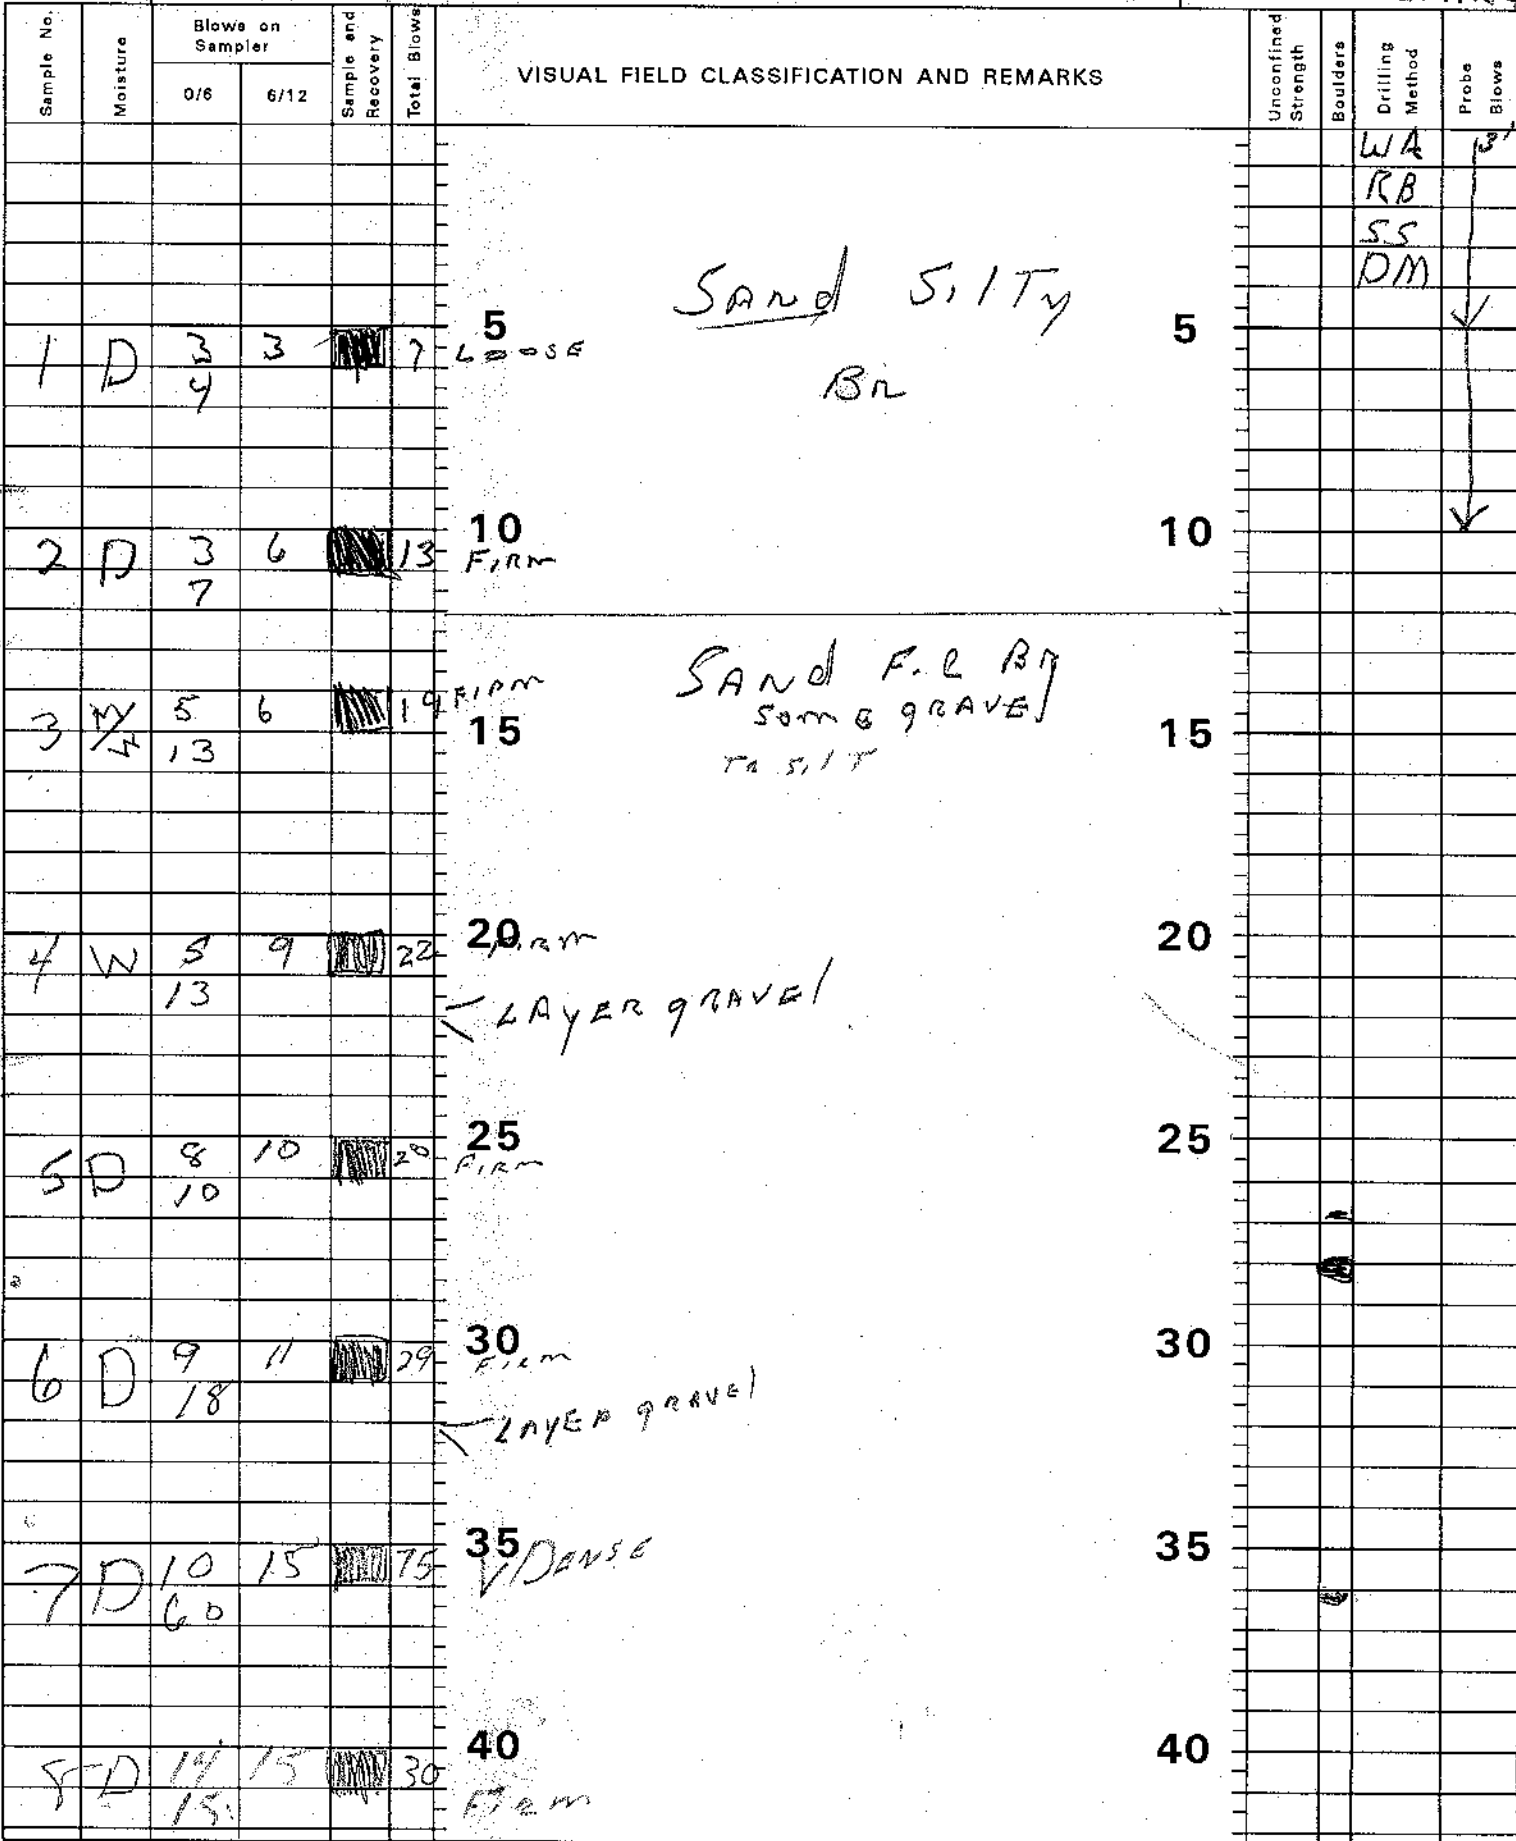 Sample No.
Moisture
Blows on
Sampler
0/6
6/12
Sample and
Recovery
Total Blows
VISUAL FIELD CLASSIFICATION AND REMARKS
Unconfined
Strength
Boulders
Drilling
Method
Probe
Blows
WA 3'
RB
SS
DM
SAnd SilTy
5 5
1 D 3 3 7 LOOSE
4
Br
10 10
2 D 3 6 13 Firm
7
SANd F.c Br
some gRAVEl
3 M/W 5 6 19 Firm
13
15 15
Tr silT
20 20
4 W 5 9 22 Firm
13
LAyER gRAVEl
25 25
5 D 8 10 20 Firm
10
30 30
6 D 9 11 29 Firm
18
LAyER gRAVEl
35 35
7 D 10 15 75 V DENSE
60
40 40
8 D 14 15 30
15
Firm